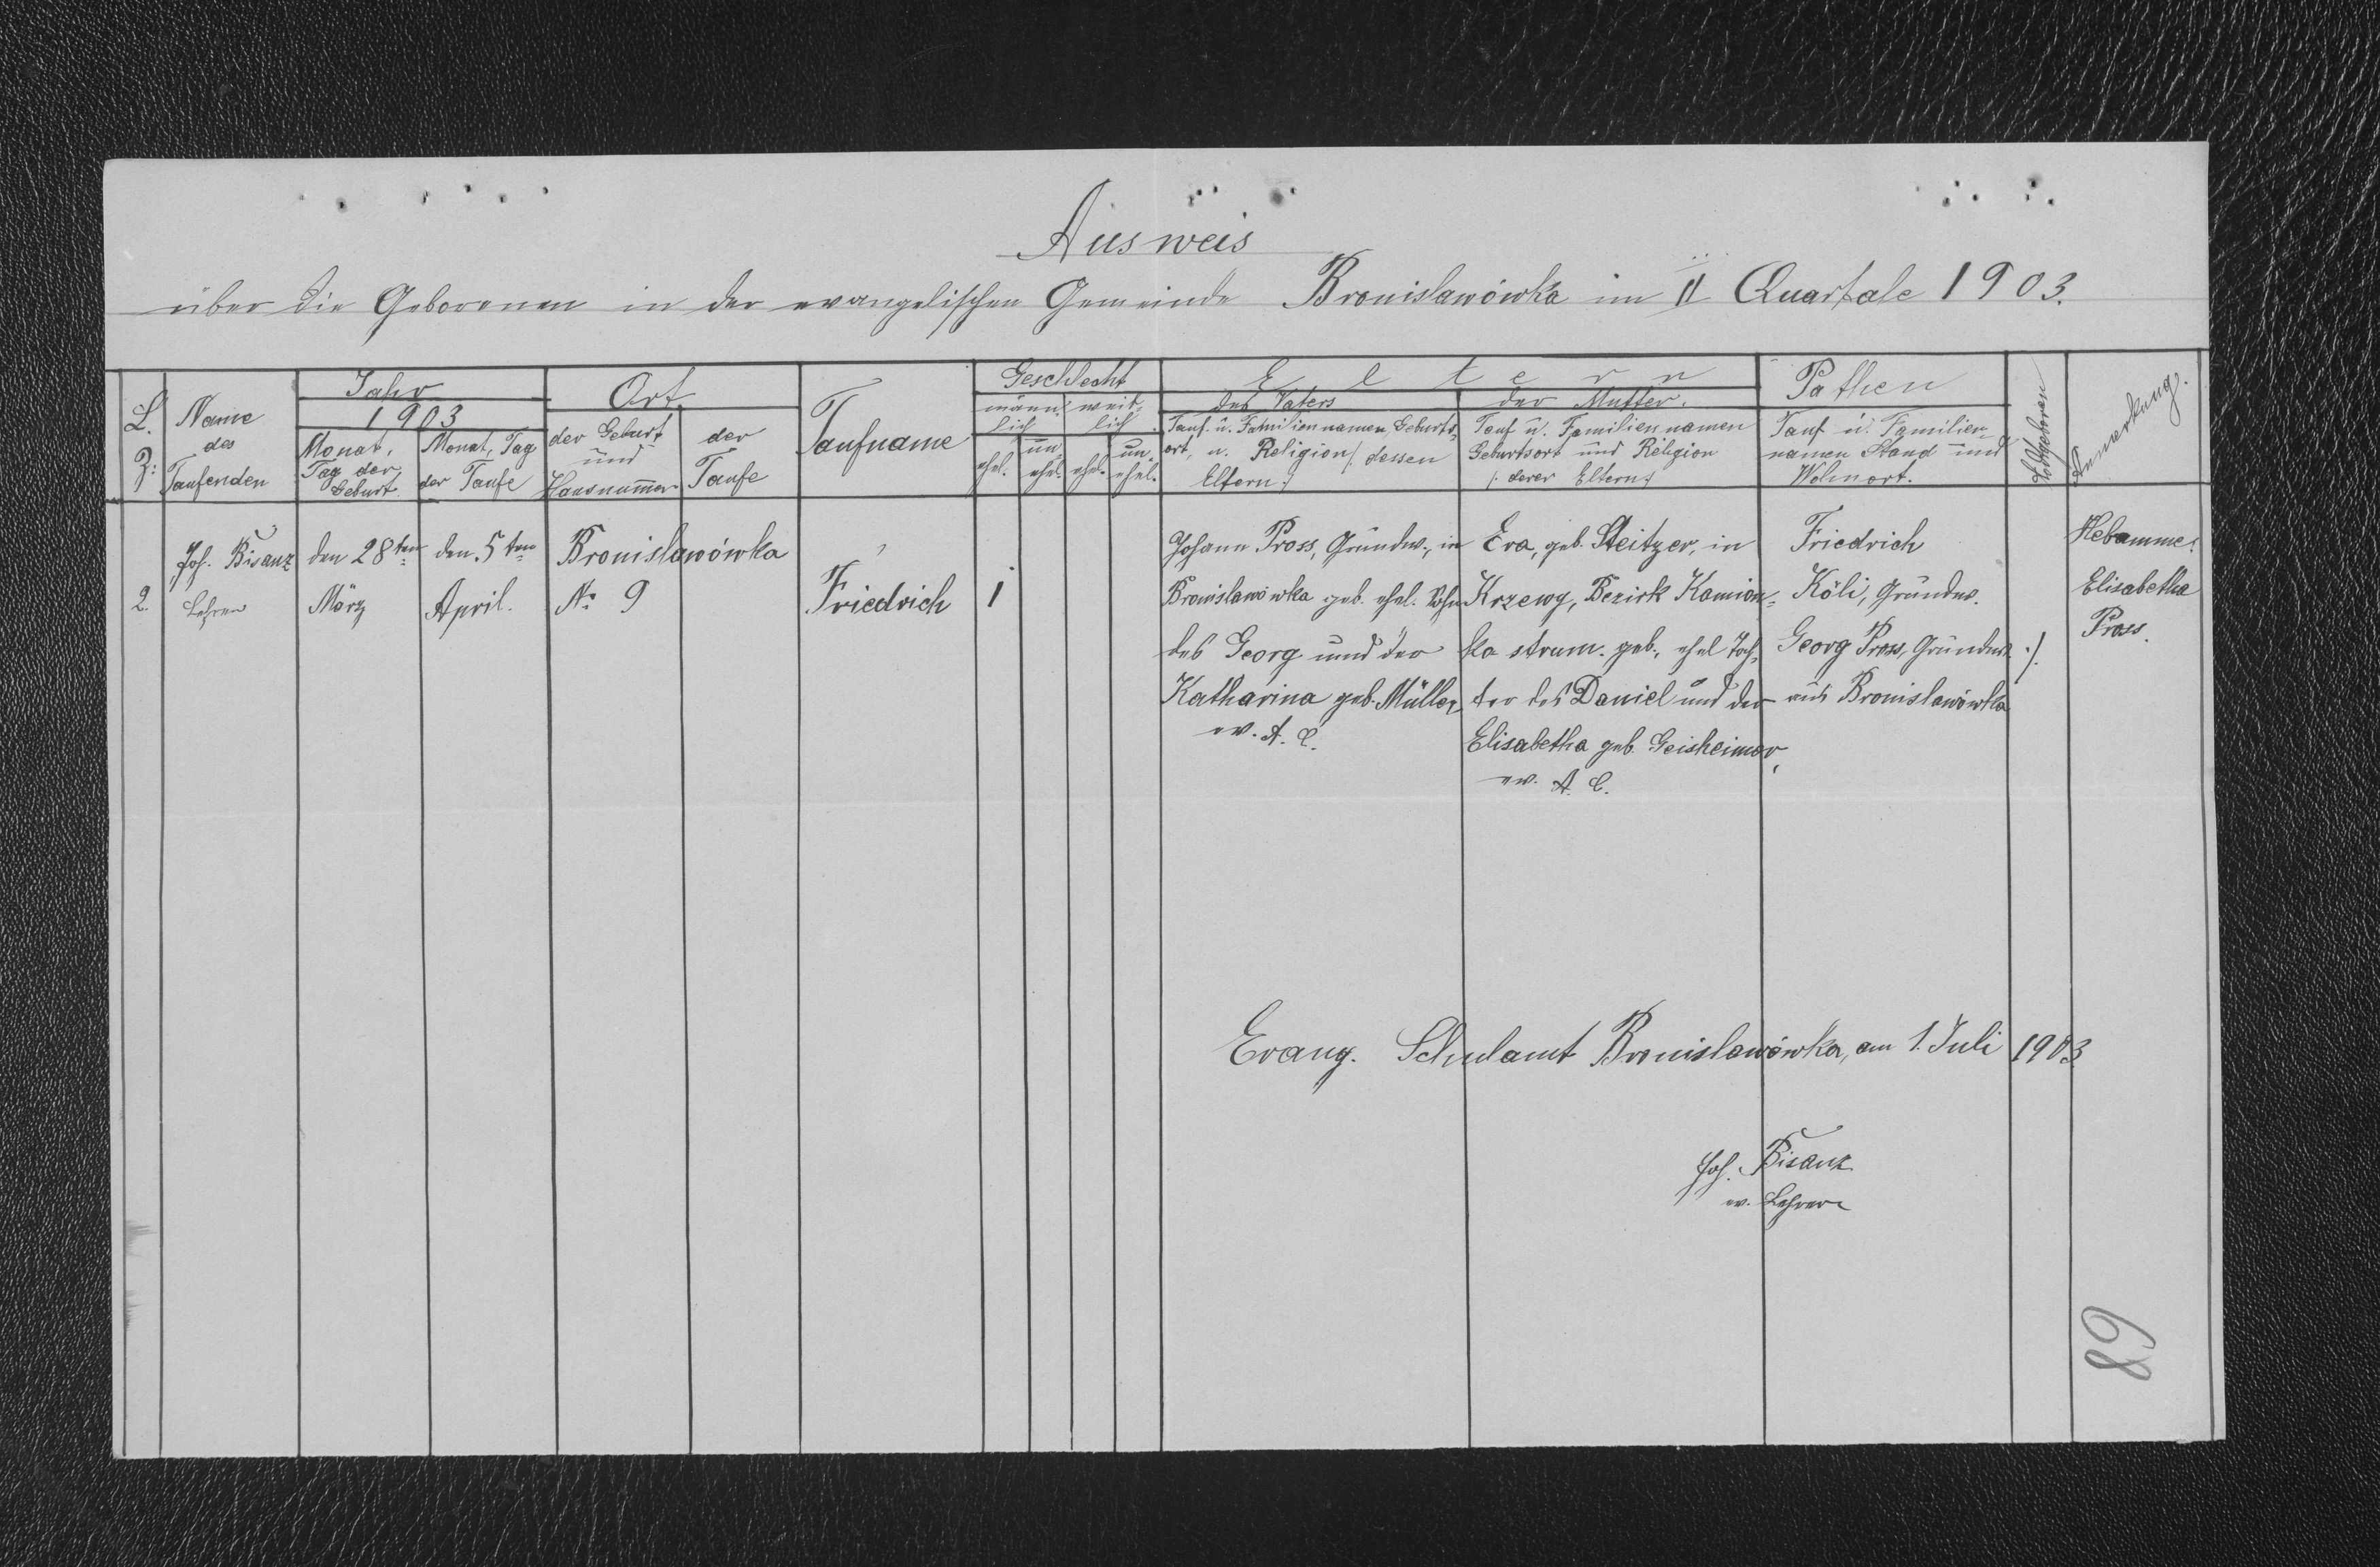 Ausweis
über die Geborenen in der evangelischen Gemeinde Bronislawówka im II Quartale 1903.
L. Z:
Name
des
Taufenden
Jahr
1903
Monat,
Tag der
Geburt
Monat, Tag
der Taufe
Ort
der Geburt
und
Hausnummer
der
Taufe
Taufname
Geschlecht
männ-
lich
weib-
lich
ehel.
un
ehel.
ehel.
un.
ehel.
Eltern
des Vaters
Tauf. u. Familiennamen, Geburts-
ort, u. Religion /: dessen
Eltern :/
der Mutter.
Tauf u. Familiennamen
Geburtsort und Religion
/: derer Eltern :/
Pathen
Tauf u. Familien-
namen Stand und
Wohnort.
Todtgeboren
Anmerkung.
2.
Joh. Bisanz
Lehrer
den 28ten
März
den 5ten
April.
Bronislawówka
No 9
Friedrich
1
Johann Pross, Grundw., in
Bronislawówka geb. ehel. Sohn
des Georg und der
Katharina geb. Müller
ev. A. C.
Eva, geb. Steitzer, in
Krzewy, Bezirk Kamion-
ka strum. geb., ehel Toch-
ter des Daniel und der
Elisabetha geb. Geisheimer,
ev. A. C.
Friedrich
Köli, Grundw.
Georg Pross, Grundw.
aus Bronislawówka
./.
Hebamme:
Elisabetha
Pross.
Evang. Schulamt Bronislawówka, am 1. Juli 1903.
Joh. Bisanz
ev. Lehrer
89